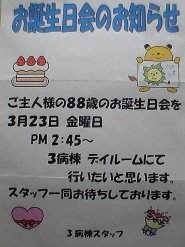 お誕生日会のお知らせ
ご主人様の88歳のお誕生日会を
3月23日 金曜日
PM 2:45～
3病棟 デイルームにて
行いたいと思います。
スタッフ一同お待ちしております。
3病棟スタッフ